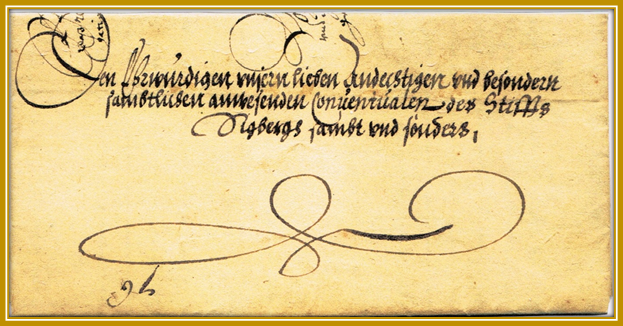 Den Ehrwürdigen unsern lieben Andechtigen und besondern
sambtlichen anwesenden Conventualen des Stiffts
Sigbergs sambt und sonders,